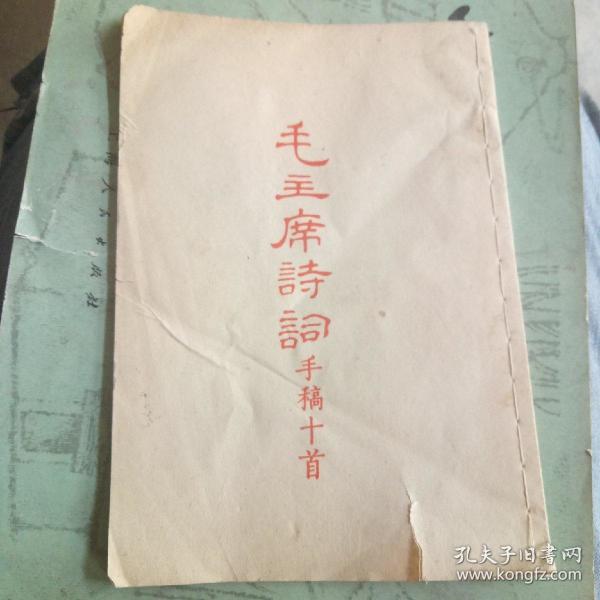 毛主席詩詞手稿十首
人民出版社
孔夫子旧书网
www.kongfz.com